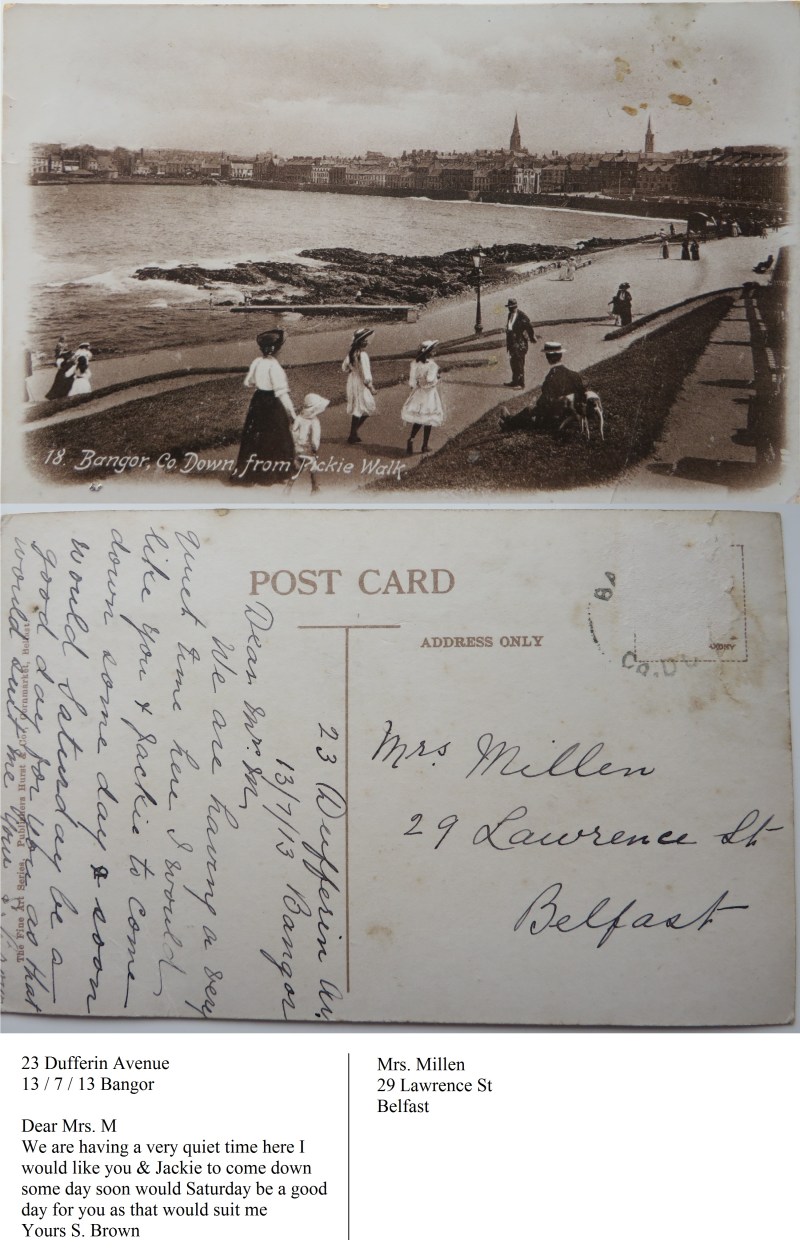 18. Bangor, Co. Down, from Pickie Walk.
POST CARD
ADDRESS ONLY
23 Dufferin Av.
13/7/13 Bangor
Dear Mrs. M,
We are having a very
quiet time here I would
like you & Jackie to come
down some day & soon
would Saturday be a
good day for you as that
would suit me Yours S. Brown
The Fine Art Series. Publishers Hurst & Co. Belfast
Mrs Millen
29 Lawrence St
Belfast
CO.DO
23 Dufferin Avenue
13 / 7 / 13 Bangor
Dear Mrs. M
We are having a very quiet time here I
would like you & Jackie to come down
some day soon would Saturday be a good
day for you as that would suit me
Yours S. Brown
Mrs. Millen
29 Lawrence St
Belfast